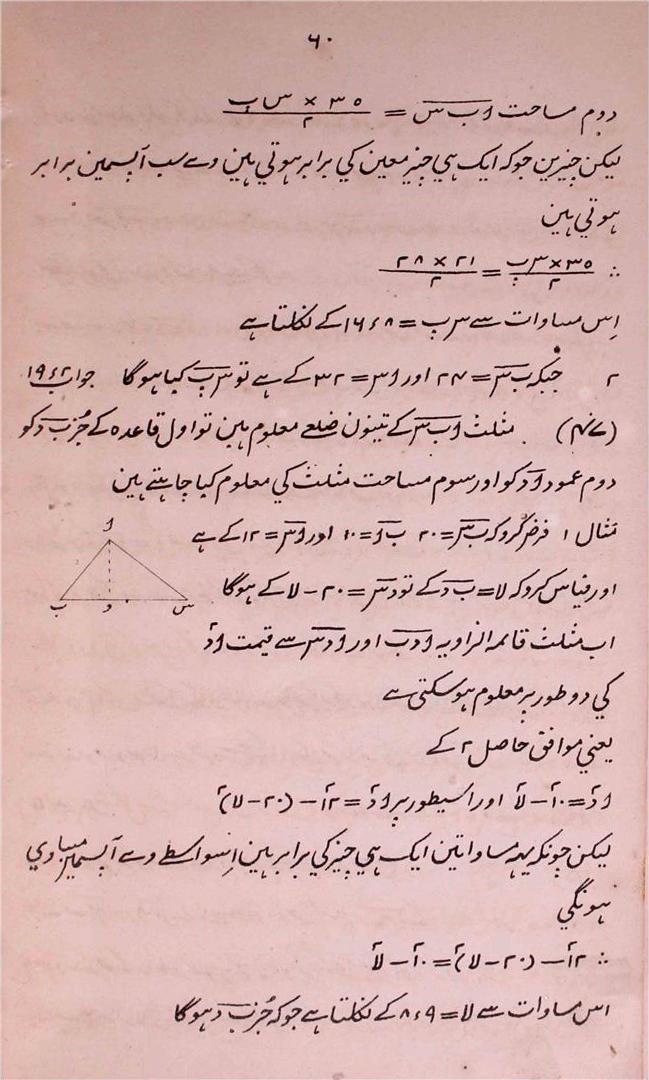 ۶۰
دوم مساحت ا ب س = ۳۵ × س پ / ۲
لیکن چیزین جوکہ ایک ہی چیز معین کي برابر ہوتي ہین وے سب آپسمین برابر
ہوتي ہین
∴ ۳۵ × س پ / ۲ = ۲۱ × ۲۸ / ۲
اِس مساوات سے س پ = ۱۶٫۸ کے نکلتا ہے
۲ جبکہ ب س = ۲۴ اور ا س = ۳۲ کے ہے تو س پ کیا ہوگا جواب ۱۹٫۲
(۷۴) مثلث ا ب س کے تینون ضلعے معلوم ہین تو اول قاعدہ کے جُز ب د کو
دوم عمود ا د کو اور سوم مساحت مثلث کي معلوم کیا چاہتے ہین
مثال ۱ فرض کرو کہ ب س = ۲۰ ب ا = ۱۰ اور ا س = ۱۲ کے ہے
اور قیاس کرو کہ لا = ب د کے تو د س = ۲۰ - لا کے ہوگا
ا
ب د س
اب مثلث قائمہ الزاویہ ا د ب اور ا د س سے قیمت ا د۲
کي دو طور پر معلوم ہوسکتي ہے
یعني موافق حاصل ۲ کے
ا د۲ = ۱۰۲ - لا۲ اور اسیطور پر ا د۲ = ۱۲۲ - (۲۰ - لا)۲
لیکن چونکہ یہہ مساواتین ایک ہي چیز کي برابر ہین اِسواسطے وے آپسمین مساوي
ہونگي
∴ ۱۲۲ - (۲۰ - لا)۲ = ۱۰۲ - لا۲
اس مساوات سے لا = ۸٫۹ کے نکلتا ہے جوکہ جُز ب د ہوگا